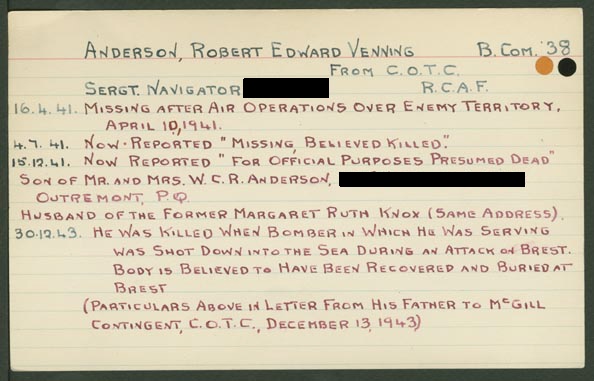 ANDERSON, ROBERT EDWARD VENNING B. COM. '38
FROM C.O.T.C.
SERGT. NAVIGATOR R.C.A.F.
16.4.41. MISSING AFTER AIR OPERATIONS OVER ENEMY TERRITORY,
APRIL 10, 1941.
4.7.41. NOW REPORTED "MISSING, BELIEVED KILLED."
15.12.41. NOW REPORTED "FOR OFFICIAL PURPOSES PRESUMED DEAD"
SON OF MR. AND MRS. W.C.R. ANDERSON,
OUTREMONT, P.Q.
HUSBAND OF THE FORMER MARGARET RUTH KNOX (SAME ADDRESS).
30.12.43. HE WAS KILLED WHEN BOMBER IN WHICH HE WAS SERVING
WAS SHOT DOWN INTO THE SEA DURING AN ATTACK ON BREST.
BODY IS BELIEVED TO HAVE BEEN RECOVERED AND BURIED AT
BREST
(PARTICULARS ABOVE IN LETTER FROM HIS FATHER TO McGILL
CONTINGENT, C.O.T.C., DECEMBER 13, 1943)